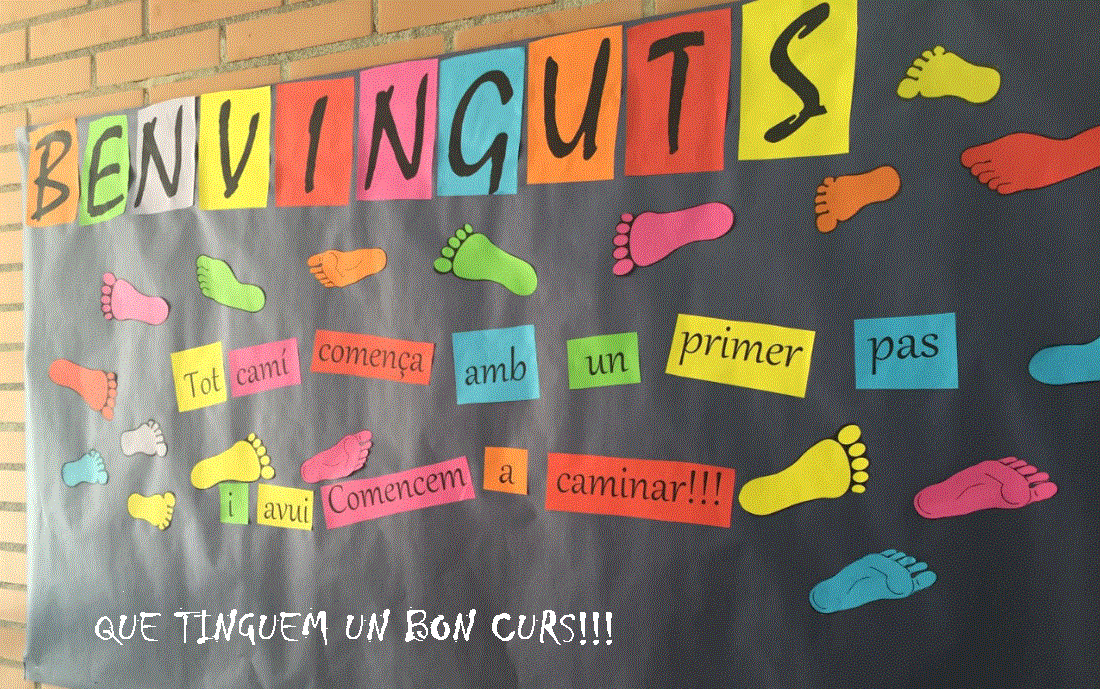 BENVINGUTS
Tot camí comença amb un primer pas
i avui Comencem a caminar!!!
QUE TINGUEM UN BON CURS!!!